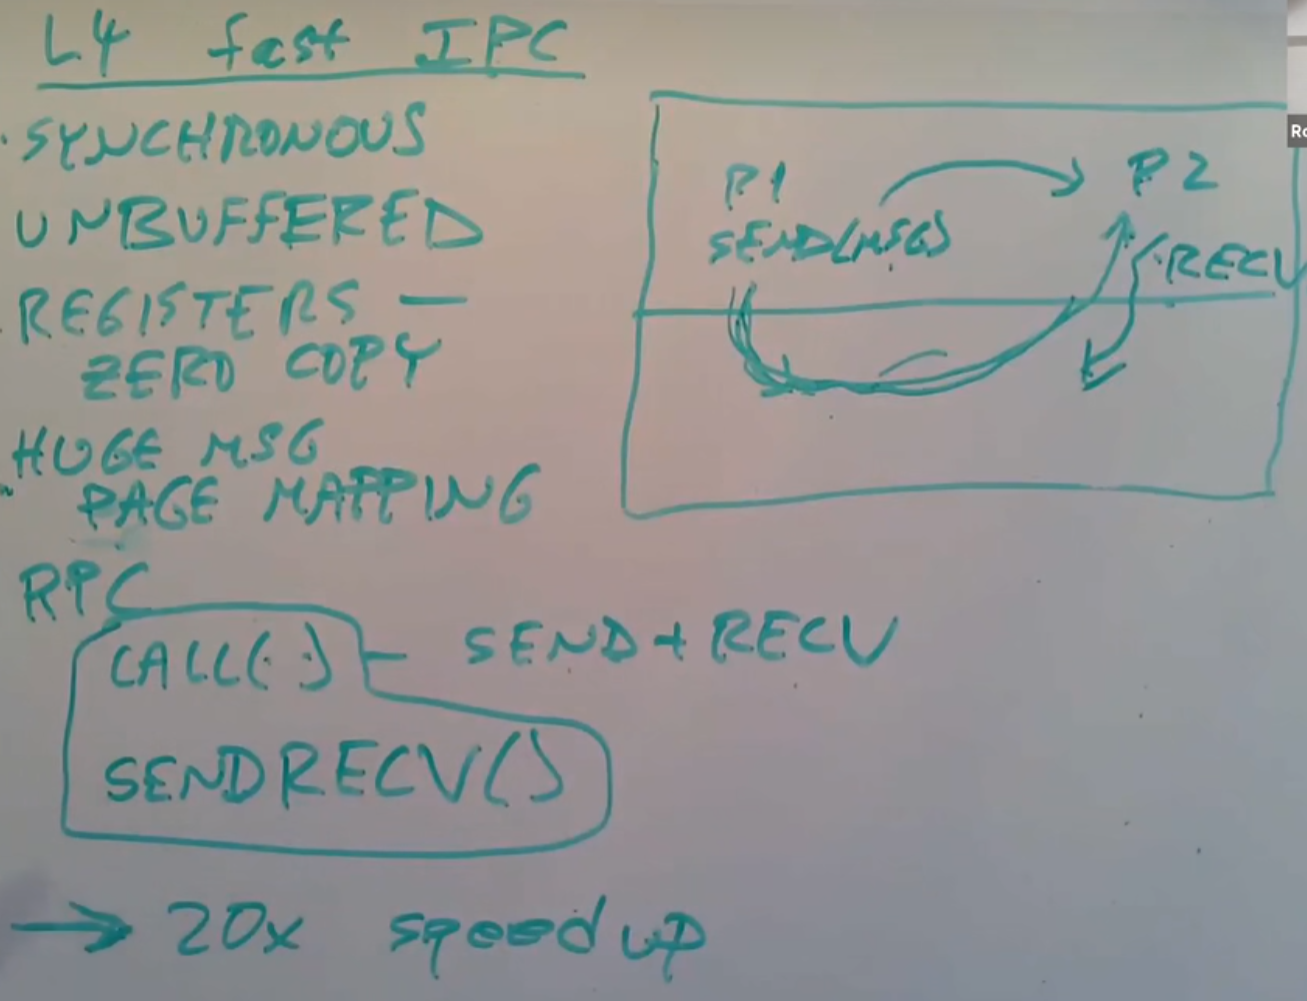 L4 fast IPC
SYNCHRONOUS
UNBUFFERED
REGISTERS —
ZERO COPY
HUGE MSG
PAGE MAPPING
RPC
CALL(··) — SEND + RECV
SENDRECV()
→ 20x speed up
P1
SEND(MSG)
P2
RECV
Ro